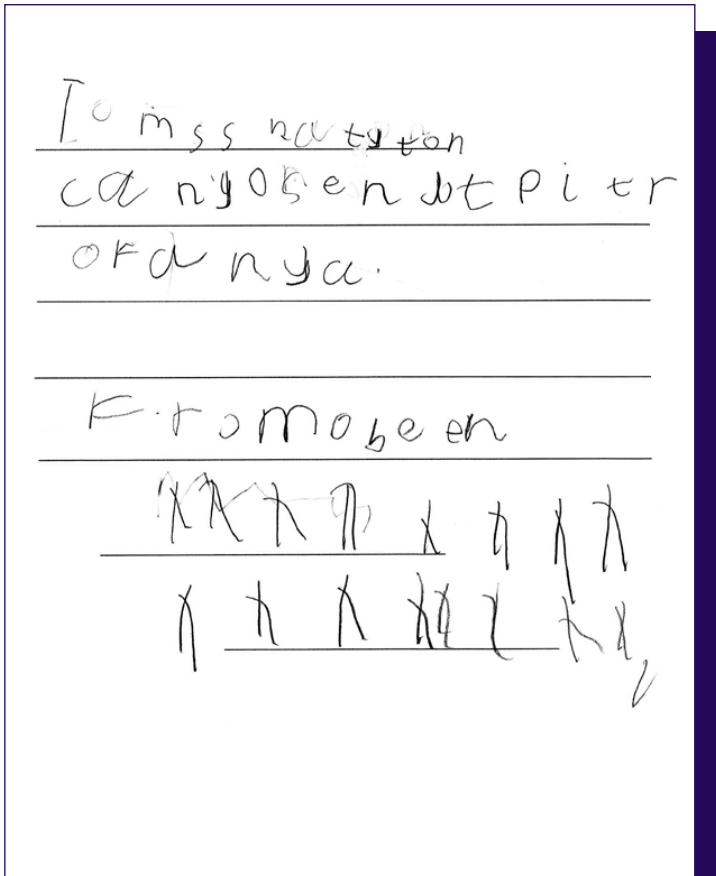 To miss natyton
can yosen ut pitr
of anya.
From obeen
xxxxxxxx
xxxxxxxx